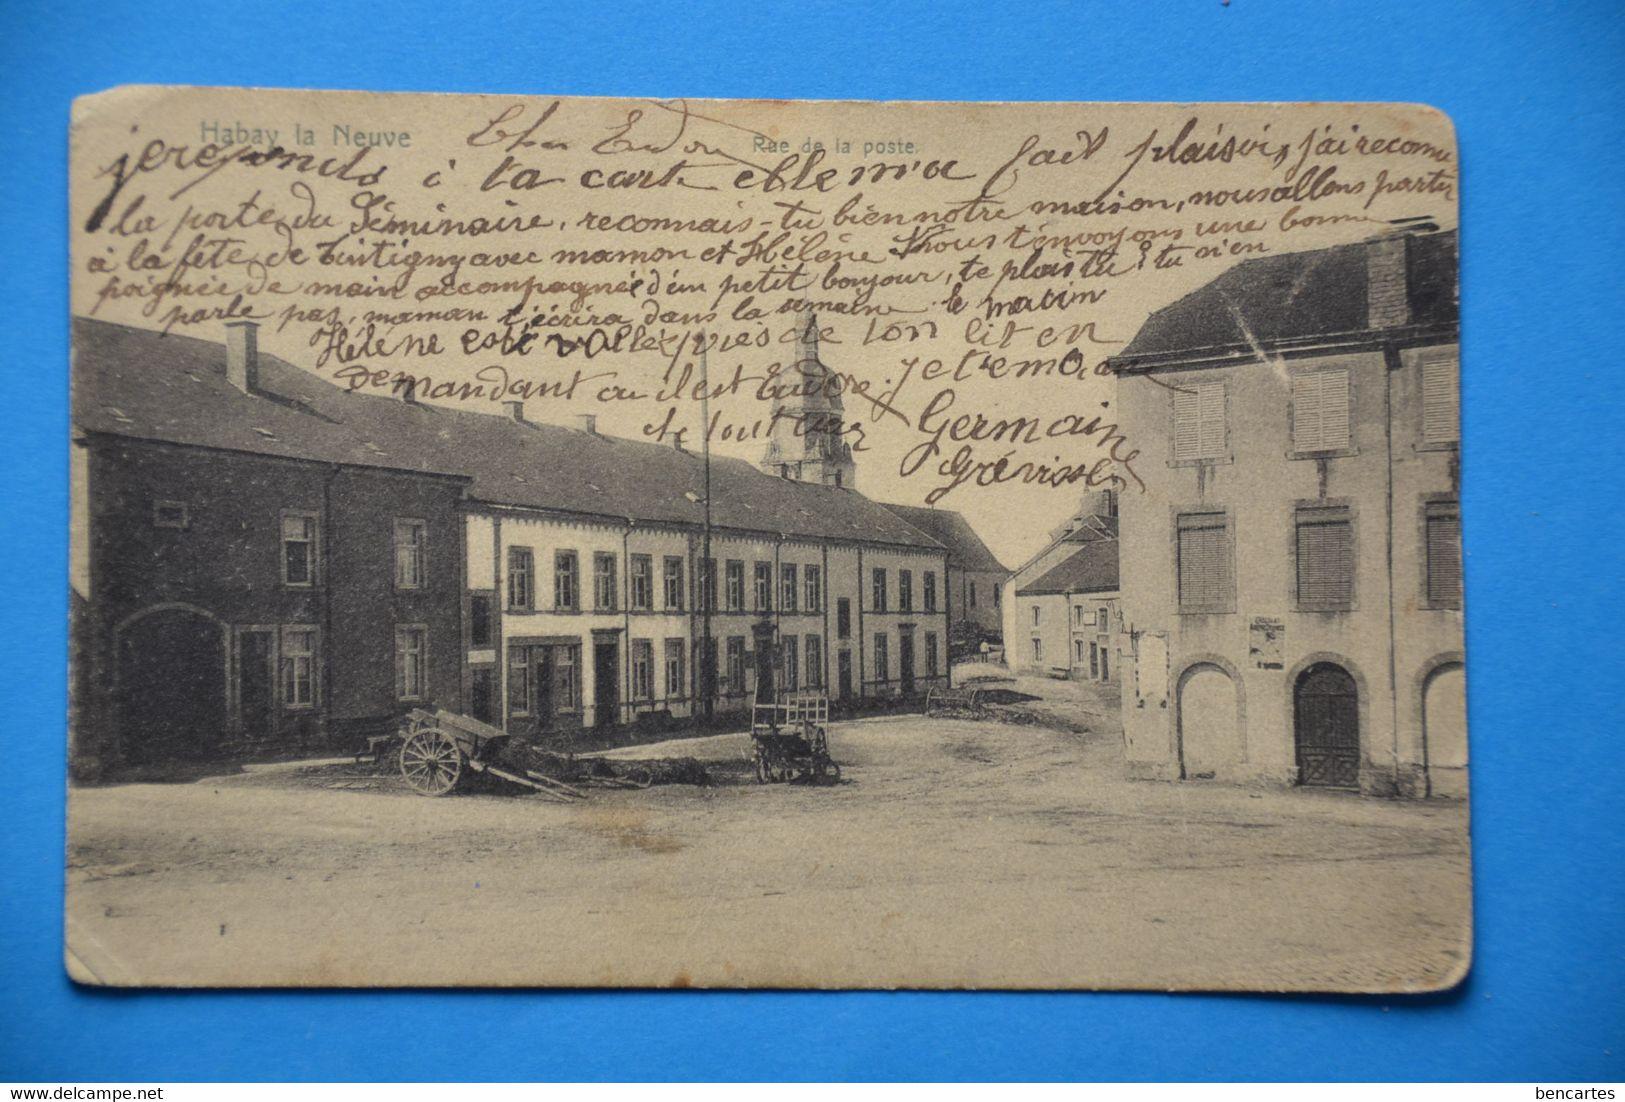 Habay la Neuve
Rue de la poste.
Cher Eudore
je réponds à ta carte elle m'a fait plaisir, j'ai reconnu
la porte du Séminaire, reconnais-tu bien notre maison, nous allons partir
à la fête de Tintigny avec maman et Hélène Nous t'envoyons une bonne
poignée de main accompagnée d'un petit bonjour, te plais tu? tu n'en
parle pas, maman t'écrira dans la semaine le matin
Hélène est allée près de ton lit en
demandant ou il est Eudore. Je t'em
de tout
Germain
Grévisse
CHOCOLAT
Hit enter to search or ESC to close
bencartes